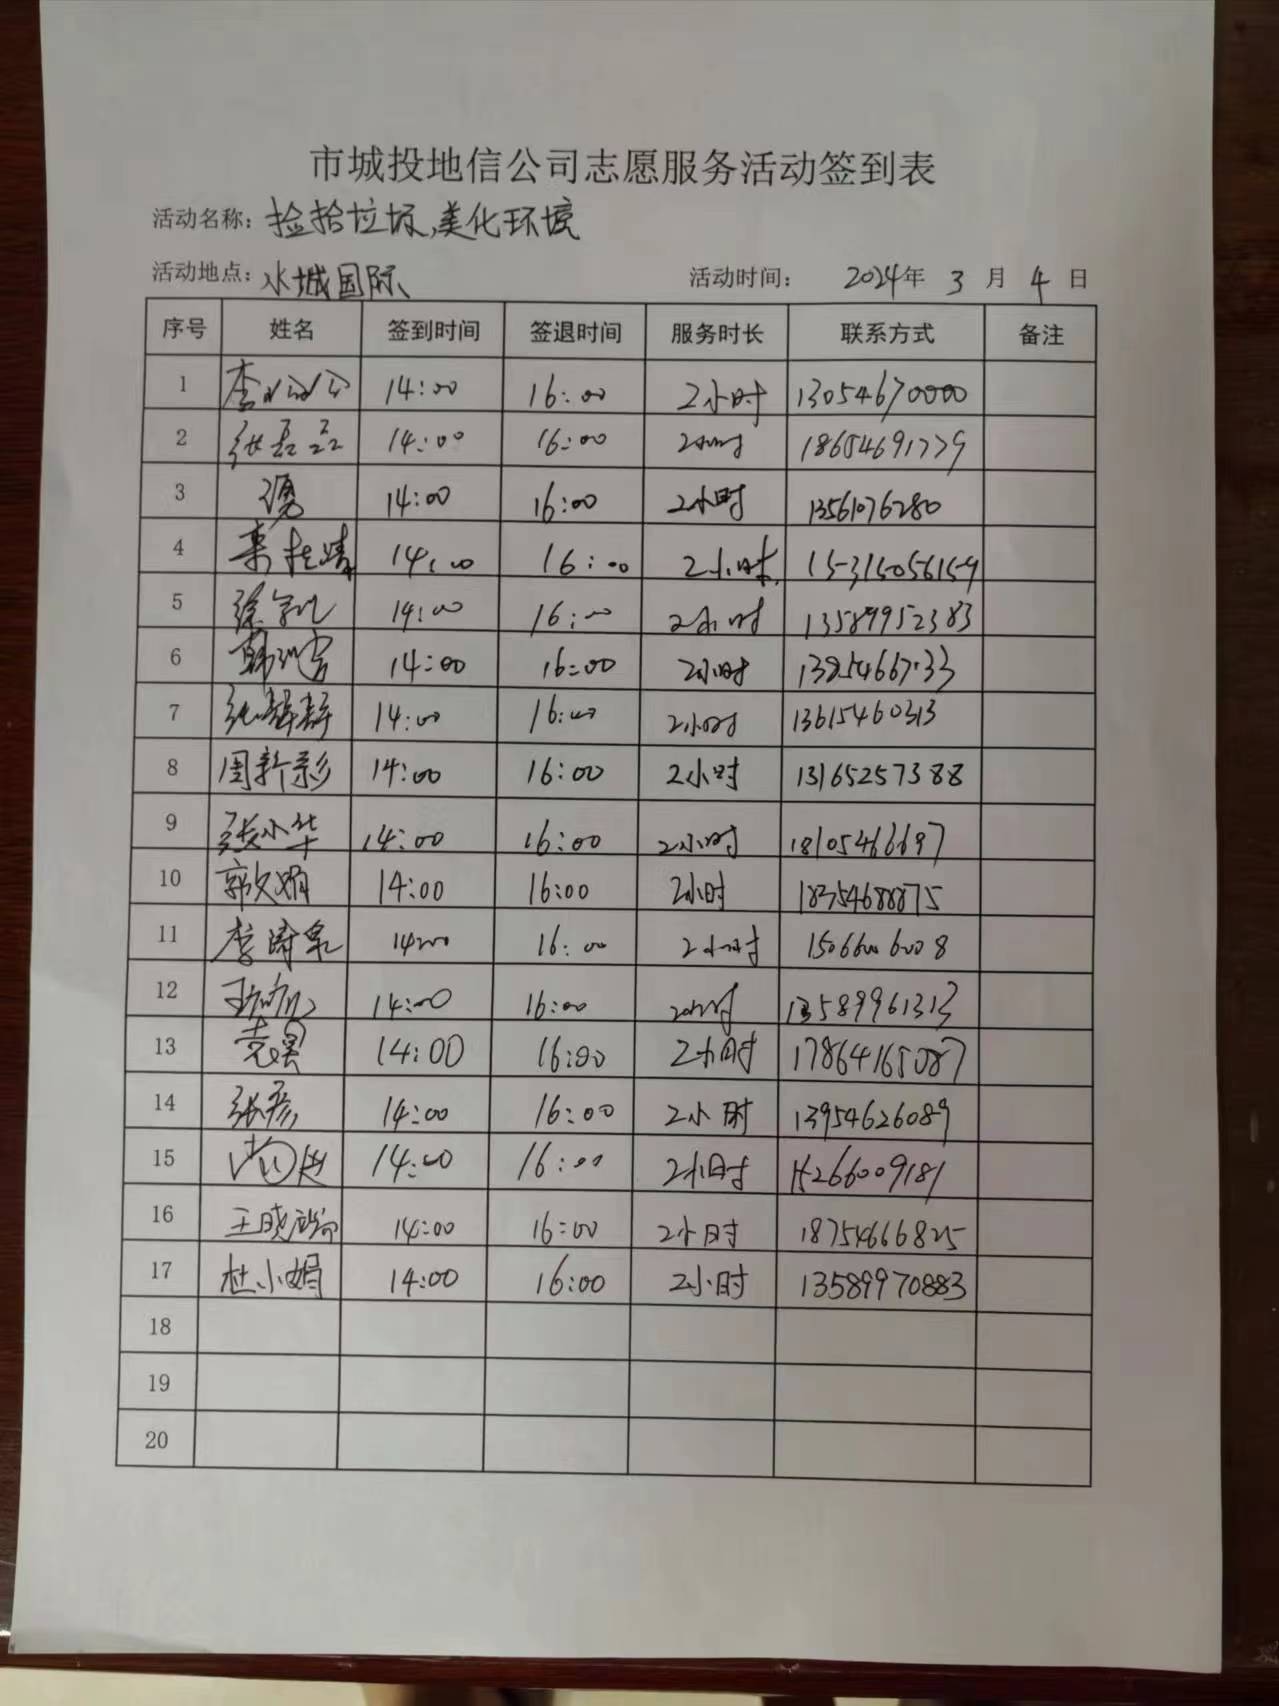 市城投地信公司志愿服务活动签到表
活动名称：捡拾垃圾，美化环境
活动地点：水城国际 活动时间： 2024年 3 月 4 日
序号 姓名 签到时间 签退时间 服务时长 联系方式 备注
1 14:00 16:00 2小时 13054670000
2 张磊磊 14:00 16:00 2小时 18654691779
3 14:00 16:00 2小时 13561076280
4 14:00 16:00 2小时 15315056159
5 14:00 16:00 2小时 13589952383
6 14:00 16:00 2小时
7 14:00 16:00 2小时 13615460313
8 周新彩 14:00 16:00 2小时 13165257388
9 张小华 14:00 16:00 2小时 18105466697
10 郭文娟 14:00 16:00 2小时 18354688875
11 14:00 16:00 2小时 15066006008
12 14:00 16:00 2小时 13589961313
13 袁昊 14:00 16:00 2小时 17864165087
14 张彦 14:00 16:00 2小时 13954626089
15 14:00 16:00 2小时 15266009181
16 14:00 16:00 2小时 18754666825
17 杜小娟 14:00 16:00 2小时 13589970883
18
19
20